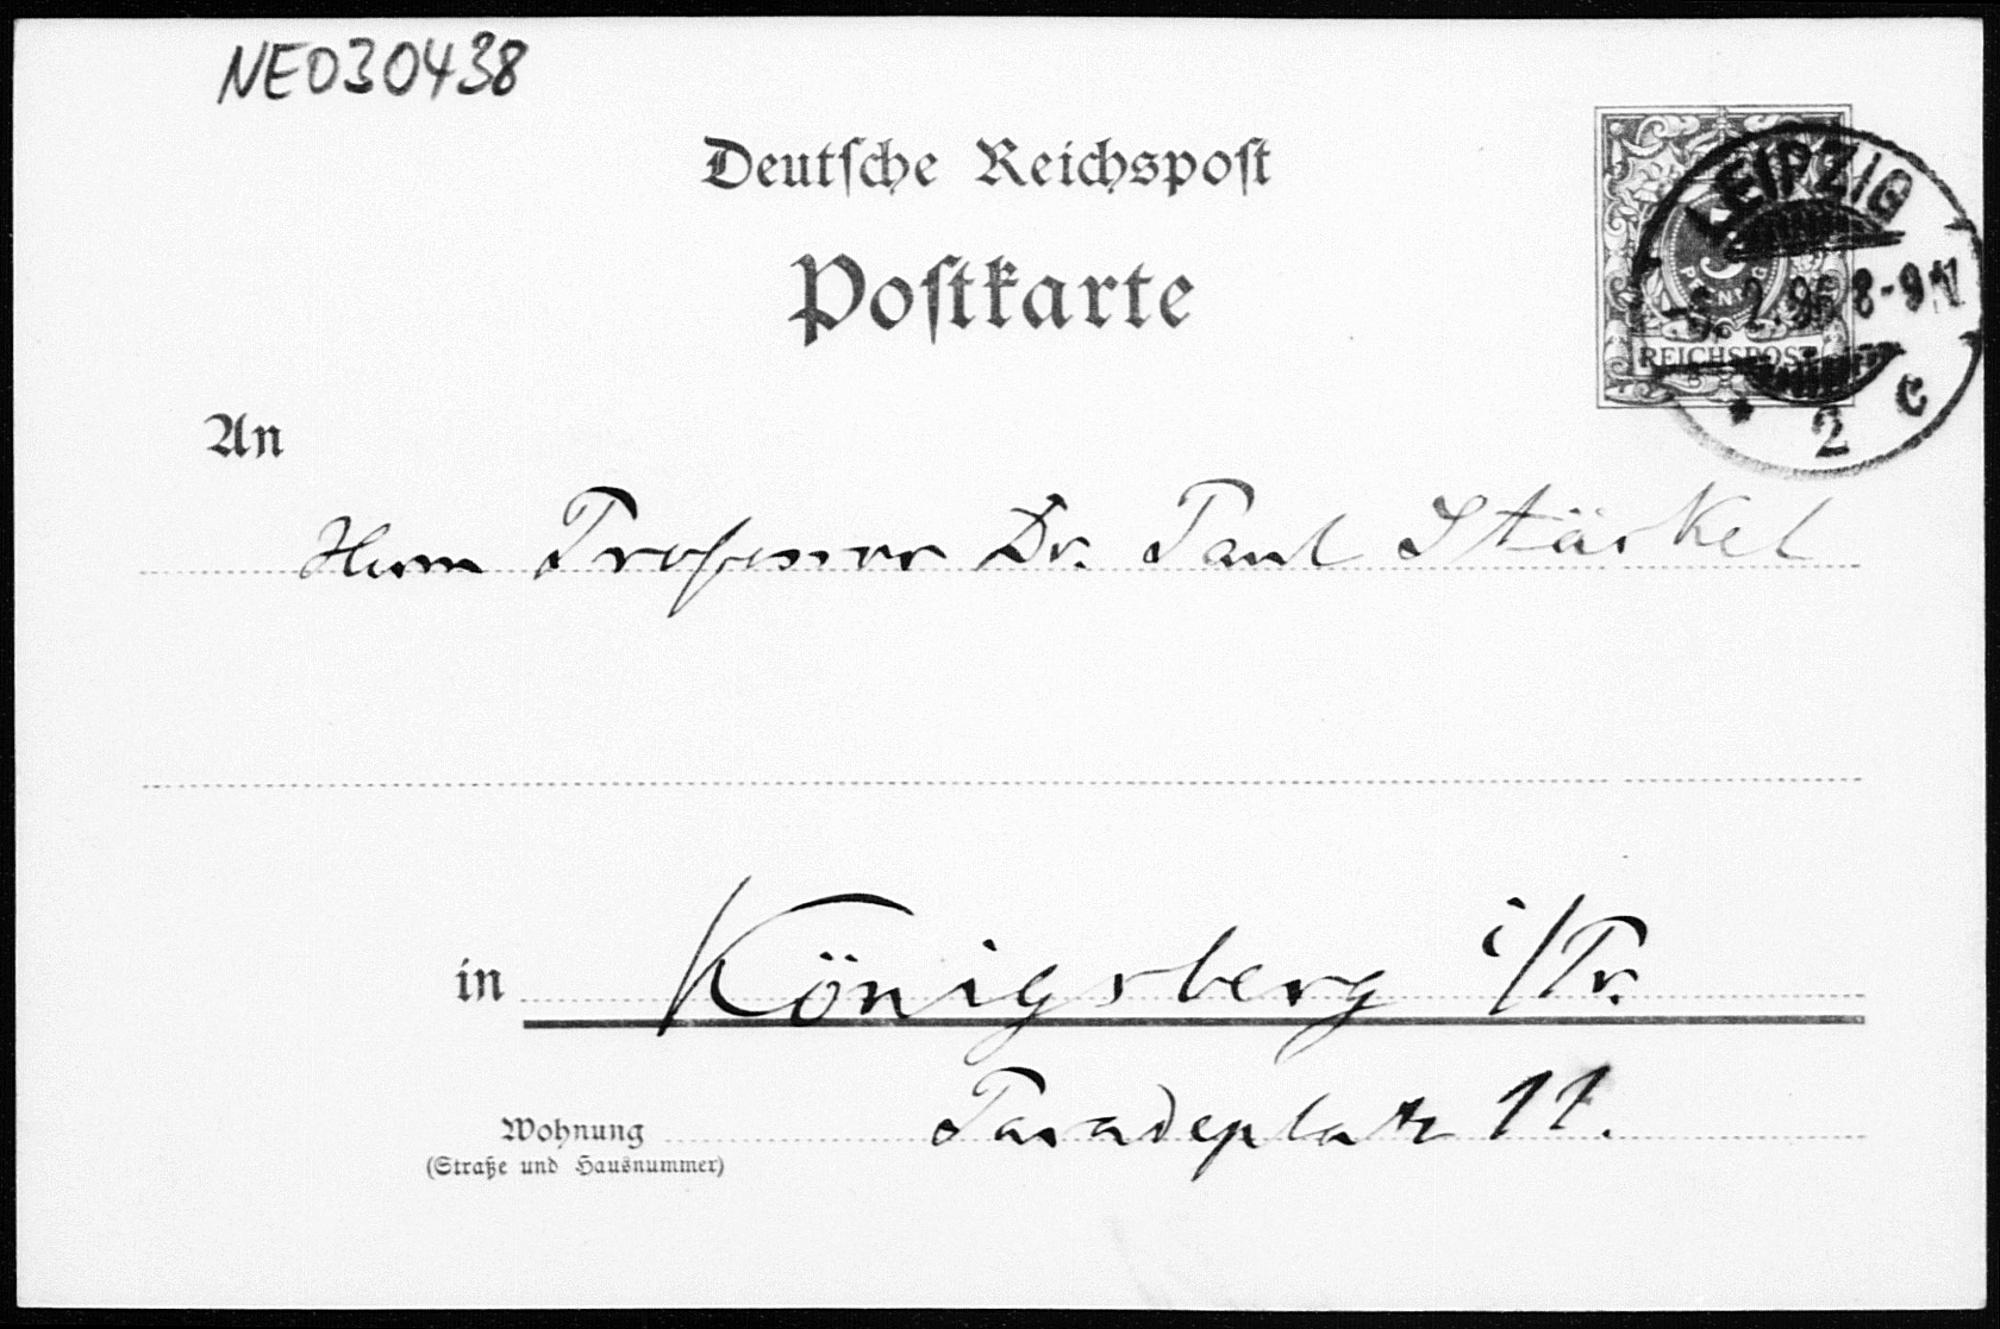 NE030438
Deutsche Reichspost
Postkarte
LEIPZIG
5
PFENNIG
-5. 2.96 8-9N
REICHSPOST
* 2 c
An
Herrn Professor Dr. Paul Stäckel
in Königsberg i/Pr.
Wohnung Paradeplatz 11.
(Straße und Hausnummer)